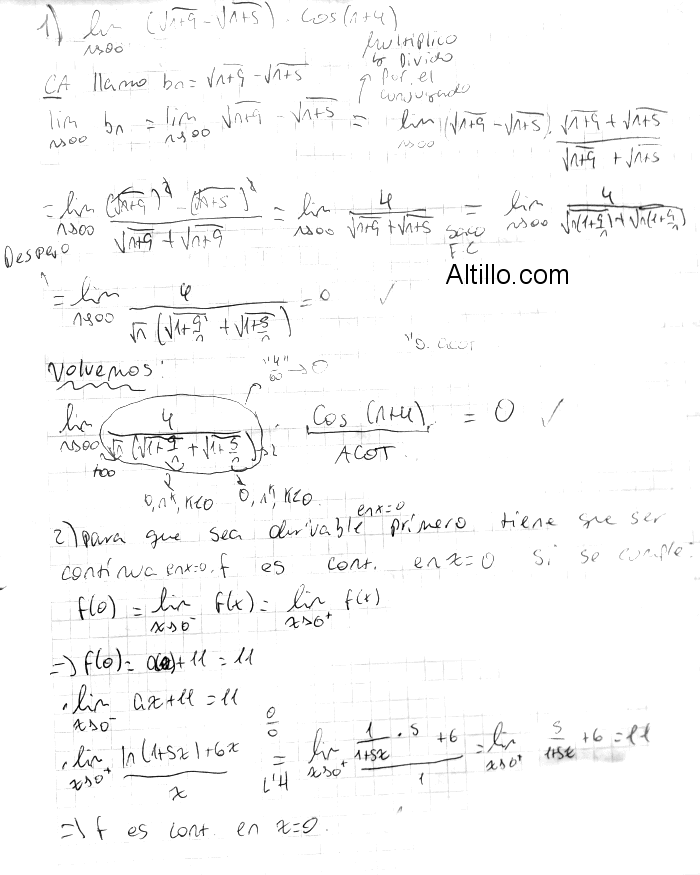 1) lim n→∞ (√n+9 - √n+5) · cos(n+4)
Multiplico
y Divido
por el
conjugado
CA llamo bn = √n+9 - √n+5
lim n→∞ bn = lim n→∞ √n+9 - √n+5 = lim n→∞ (√n+9 - √n+5) · (√n+9 + √n+5) / (√n+9 + √n+5)
= lim n→∞ ((√n+9)² - (√n+5)²) / (√n+9 + √n+9) = lim n→∞ 4 / (√n+9 + √n+5) = saco F.C lim n→∞ 4 / (√n(1+9/n) + √n(1+5/n))
Despejo
Altillo.com
= lim n→∞ 4 / (√n (√1+9/n + √1+5/n)) = 0 ✓
Volvemos:
"4"/∞ → 0
lim n→∞ 4 / (√n (√1+9/n + √1+5/n)) · cos(n+4) = 0 ✓
+∞ 2 ACOT.
0, nᴷ, K<0 0, nᴷ, K<0
2) para que sea derivable en x=0 primero tiene que ser
continua en x=0. f es cont. en x=0 si se cumple:
f(0) = lim x→0⁻ f(x) = lim x→0⁺ f(x)
=> f(0) = a(0)+11 = 11
· lim x→0⁻ ax+11 = 11
· lim x→0⁺ (ln(1+5x)+6x) / x = 0/0 L'H lim x→0⁺ (1/(1+5x) · 5 + 6) / 1 = lim x→0⁺ 5/(1+5x) + 6 = 11
=> f es cont. en x=0.